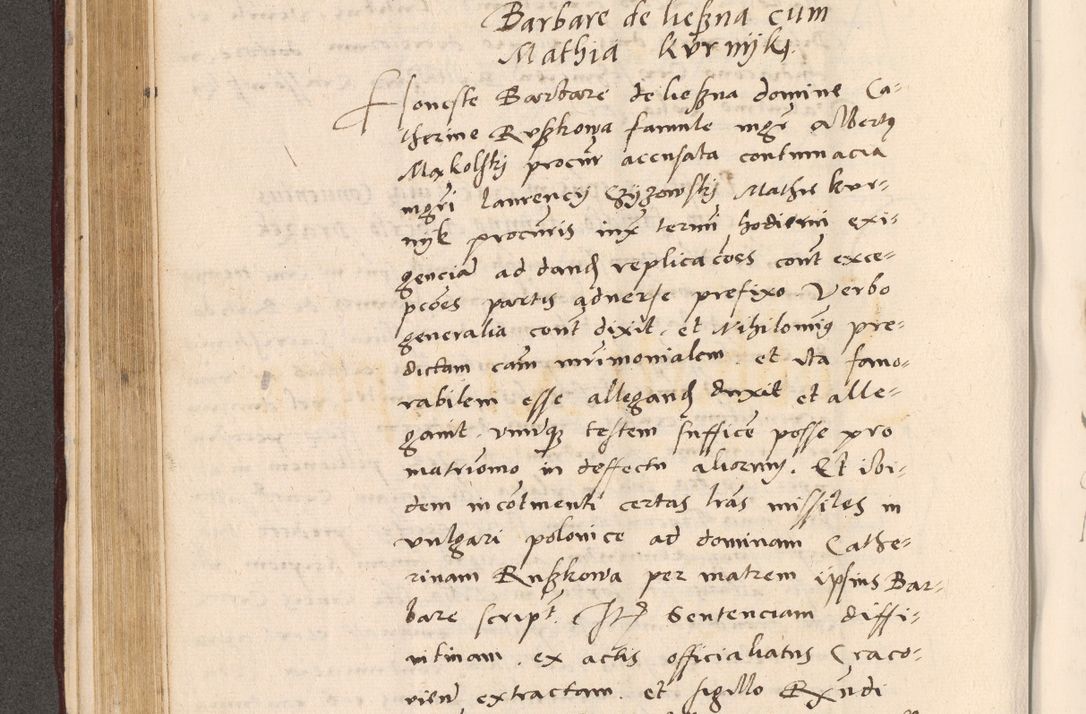 Barbare de liessna cum
Mathia Kurnijk.
Honeste Barbare de liessna domine Ca-
therine Russkowa famule mgri Alberti
Mąkolski procur accusata contumacia
mgri laurencij Czijzowskj Mathie kur-
nijk procuris iux termi hodierni exi-
genciam ad dand replicacoes cont exce-
pcoes partis aduerse prefixo. Verbo
generalia cont dixit. et Nihilominus pre-
dictam cam mrimonialem et ita fauo-
rabilem esse allegand duxit et alle-
gauit. vnumq testem suffice posse pro
matriomo in deffectu aliorum. Et ibi-
dem incotinenti certas lras missiles in
vulgari polonice ad dominam Cathe-
rinam Russkowa per matrem ipsius Bar-
bare script. Ite Sentenciam diffi-
nitiuam. ex actis officialiatus Craco-
vien extractam. et sigillo Rxndi